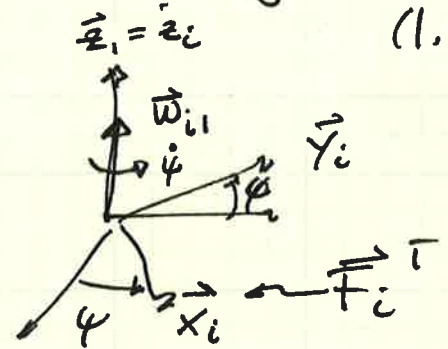 z⃗₁ = z⃗ᵢ
(1.
w⃗ᵢ₁
ψ̇
y⃗ᵢ
ψ
ψ
x⃗ᵢ